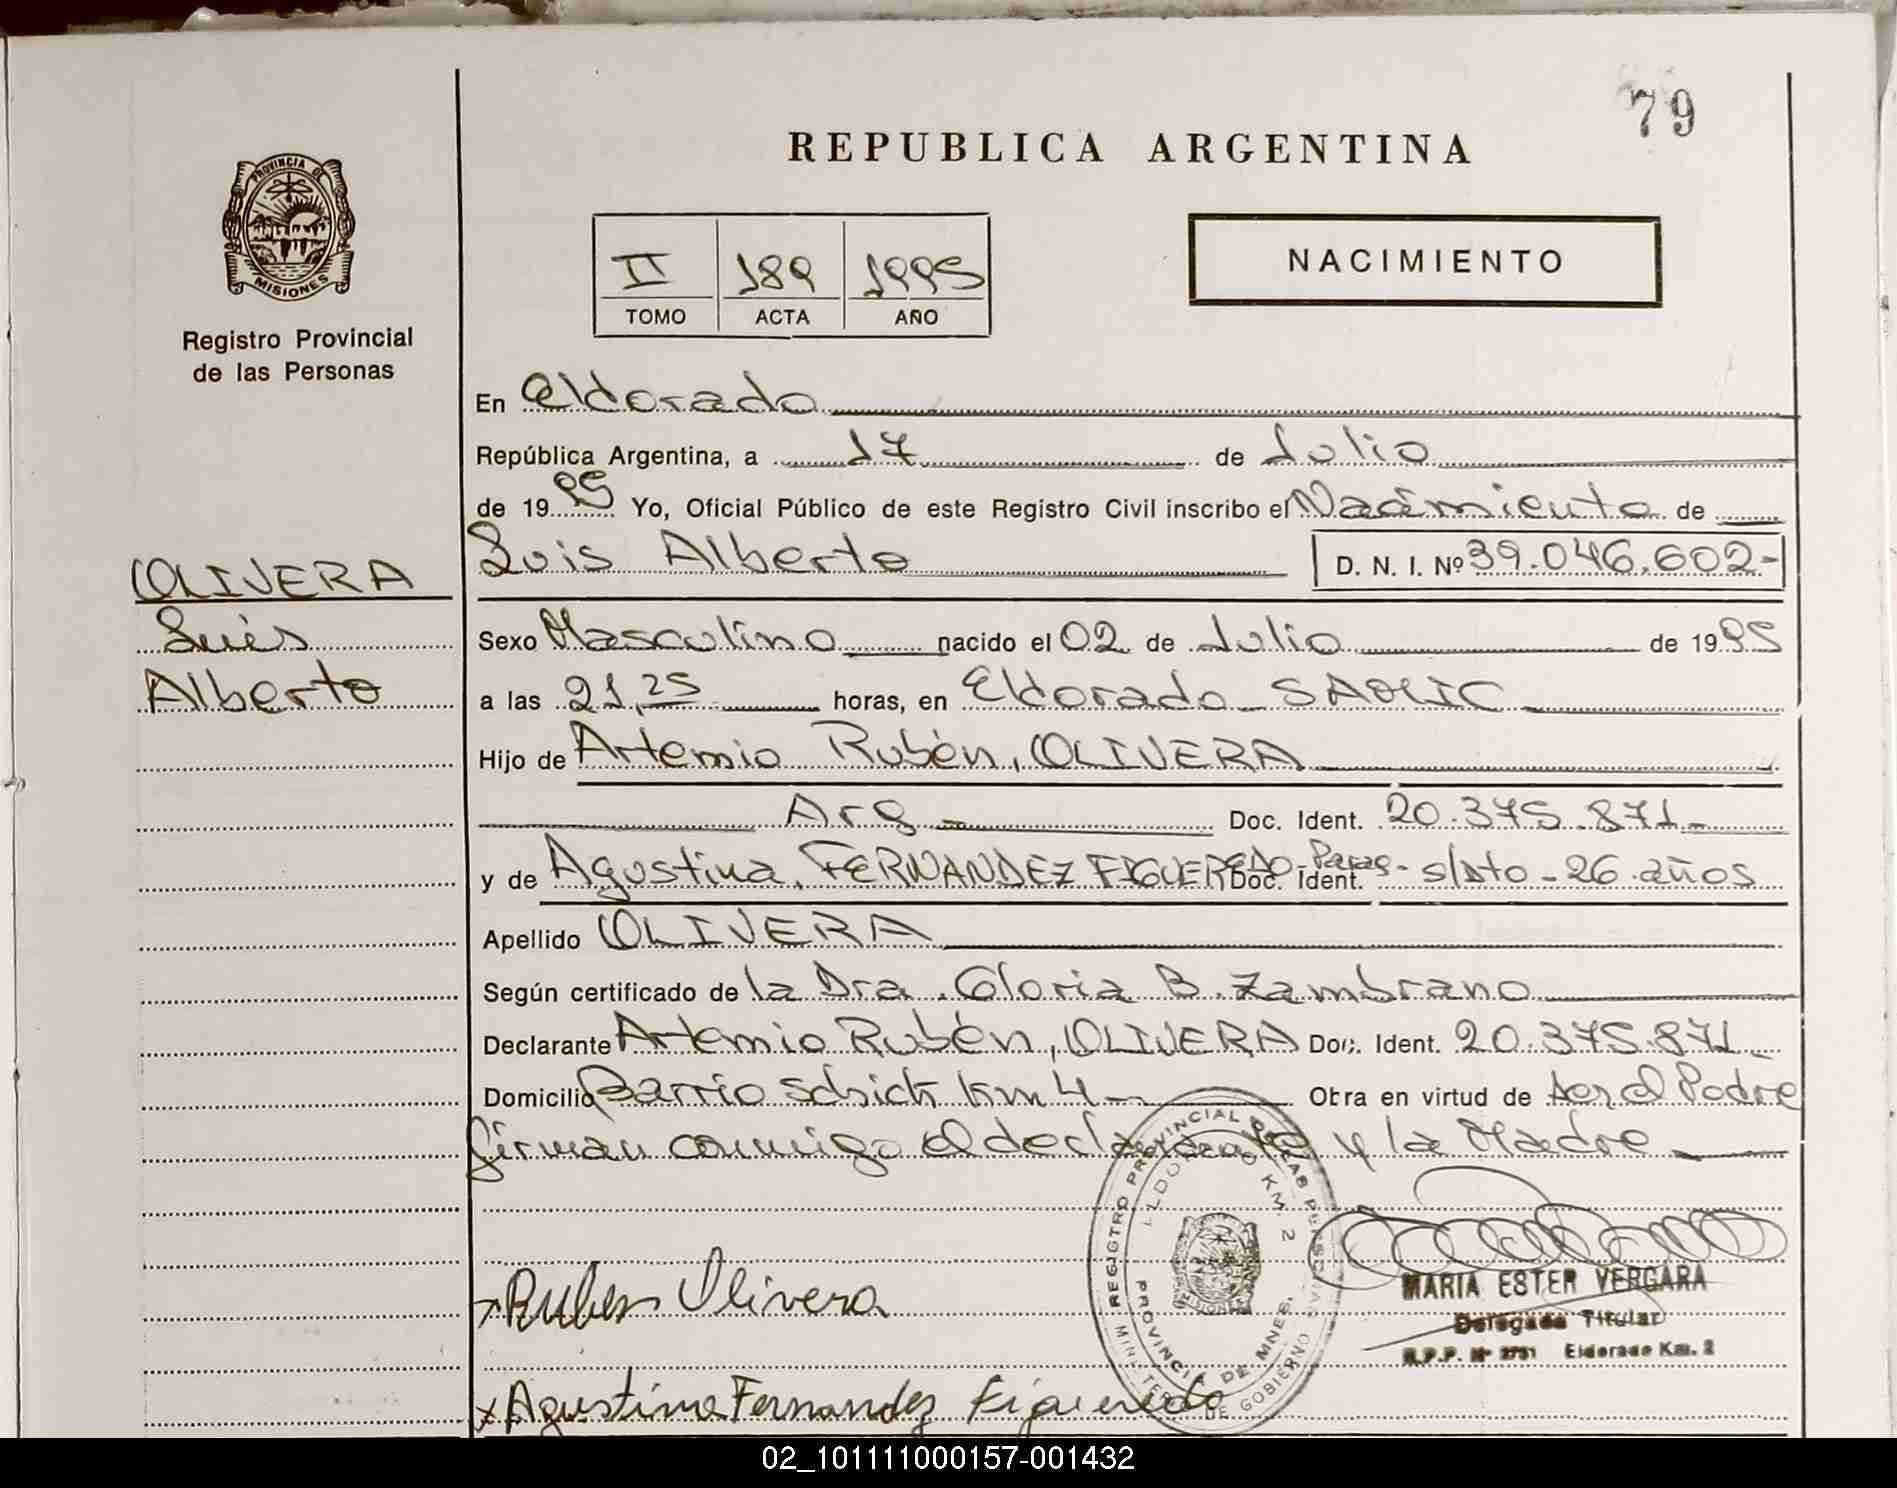 79
REPUBLICA ARGENTINA
PROVINCIA DE
MISIONES
Registro Provincial
de las Personas
II 189 1995
TOMO ACTA AÑO
NACIMIENTO
En Eldorado
República Argentina, a 17 de Julio
de 1995 Yo, Oficial Público de este Registro Civil inscribo el Nacimiento de
Luis Alberto D. N. I. Nº 39.046.602-
OLIVERA
Luis
Alberto
Sexo Masculino nacido el 02 de Julio de 1995
a las 21,25 horas, en Eldorado - SAMIC
Hijo de Artemio Rubén, OLIVERA
Arg - Doc. Ident. 20.375.871-
y de Agustina, FERNANDEZ FIGUEREDO - Parag - Doc. Ident. s/dto - 26 años
Apellido OLIVERA
Según certificado de la Dra. Gloria B. Zambrano
Declarante Artemio Rubén, OLIVERA Doc. Ident. 20.375.871-
Domicilio Barrio Schick km 4- Obra en virtud de ser el Padre
firman conmigo el declarante y la Madre
REGISTRO PROVINCIAL DE LAS PERSONAS
ELDORADO KM. 2
PROVINCIA DE MNES.
MINISTERIO DE GOBIERNO
MISIONES
x Ruben Olivera
MARIA ESTER VERGARA
Delegada Titular
R.P.P. Nº 2731 Eldorado Km. 2
x Agustina Fernandez Figueredo
02_101111000157-001432